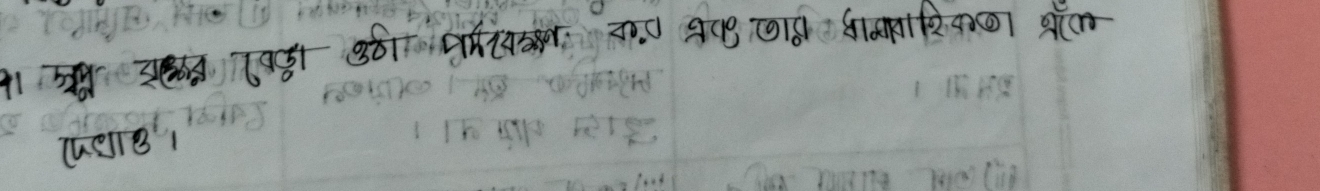 ৭। স্বপ্ন বৃক্ষের বেড়ে ওঠা পর্যবেক্ষণ কর এবং তার ধারাবাহিকতা এঁকে
দেখাও।